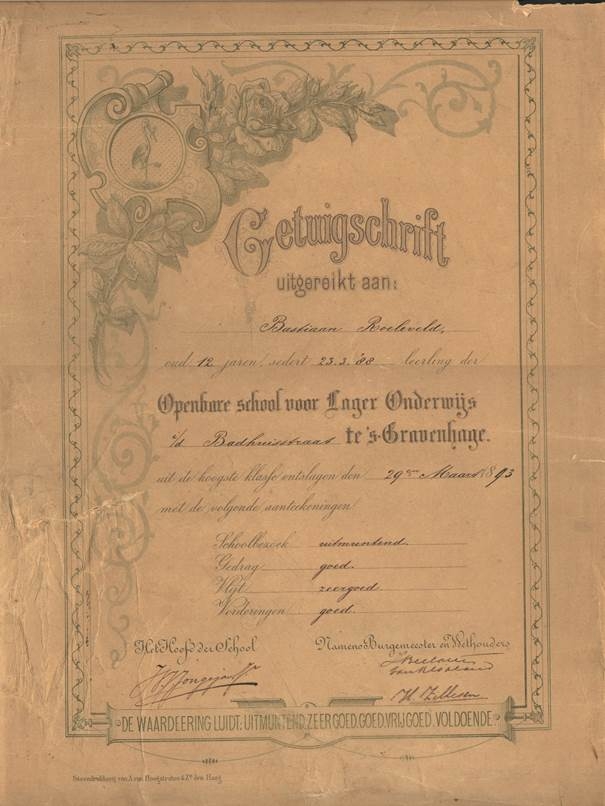 Getuigschrift
uitgereikt aan:
Bastiaan Roeleveld,
oud 12 jaren, sedert 23.3.'88 leerling der
Openbare school voor Lager Onderwijs
i/d Badhuisstraat te 's-Gravenhage.
uit de hoogste klasse ontslagen den 29sten Maart 1893
met de volgende aanteekeningen:
Schoolbezoek uitmuntend.
Gedrag goed.
Vlijt zeergoed.
Vorderingen goed.
Het Hoofd der School
Namens Burgemeester en Wethouders
DE WAARDEERING LUIDT: UITMUNTEND, ZEER GOED, GOED, VRIJ GOED, VOLDOENDE.
Steendrukkerij van A. van Hoogstraten & Zn. den Haag